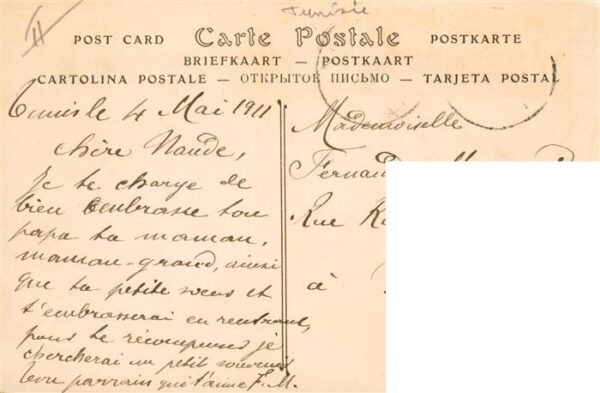 Tunisie
II
POST CARD Carte Postale POSTKARTE
BRIEFKAART — POSTKAART
CARTOLINA POSTALE — ОТКРЫТОЕ ПИСЬМО — TARJETA POSTAL
Tunis le 4 Mai 1911
chère Naude,
Je te charge de
bien embrasse ton
papa ta maman,
maman-grand, ainsi
que ta petite soeur et
t'embrasserai en rentrant,
pour te récompense je
chercherai un petit souvenir
ton parrain qui t'aime F. M.
Mademoiselle
Fernand
Rue
à